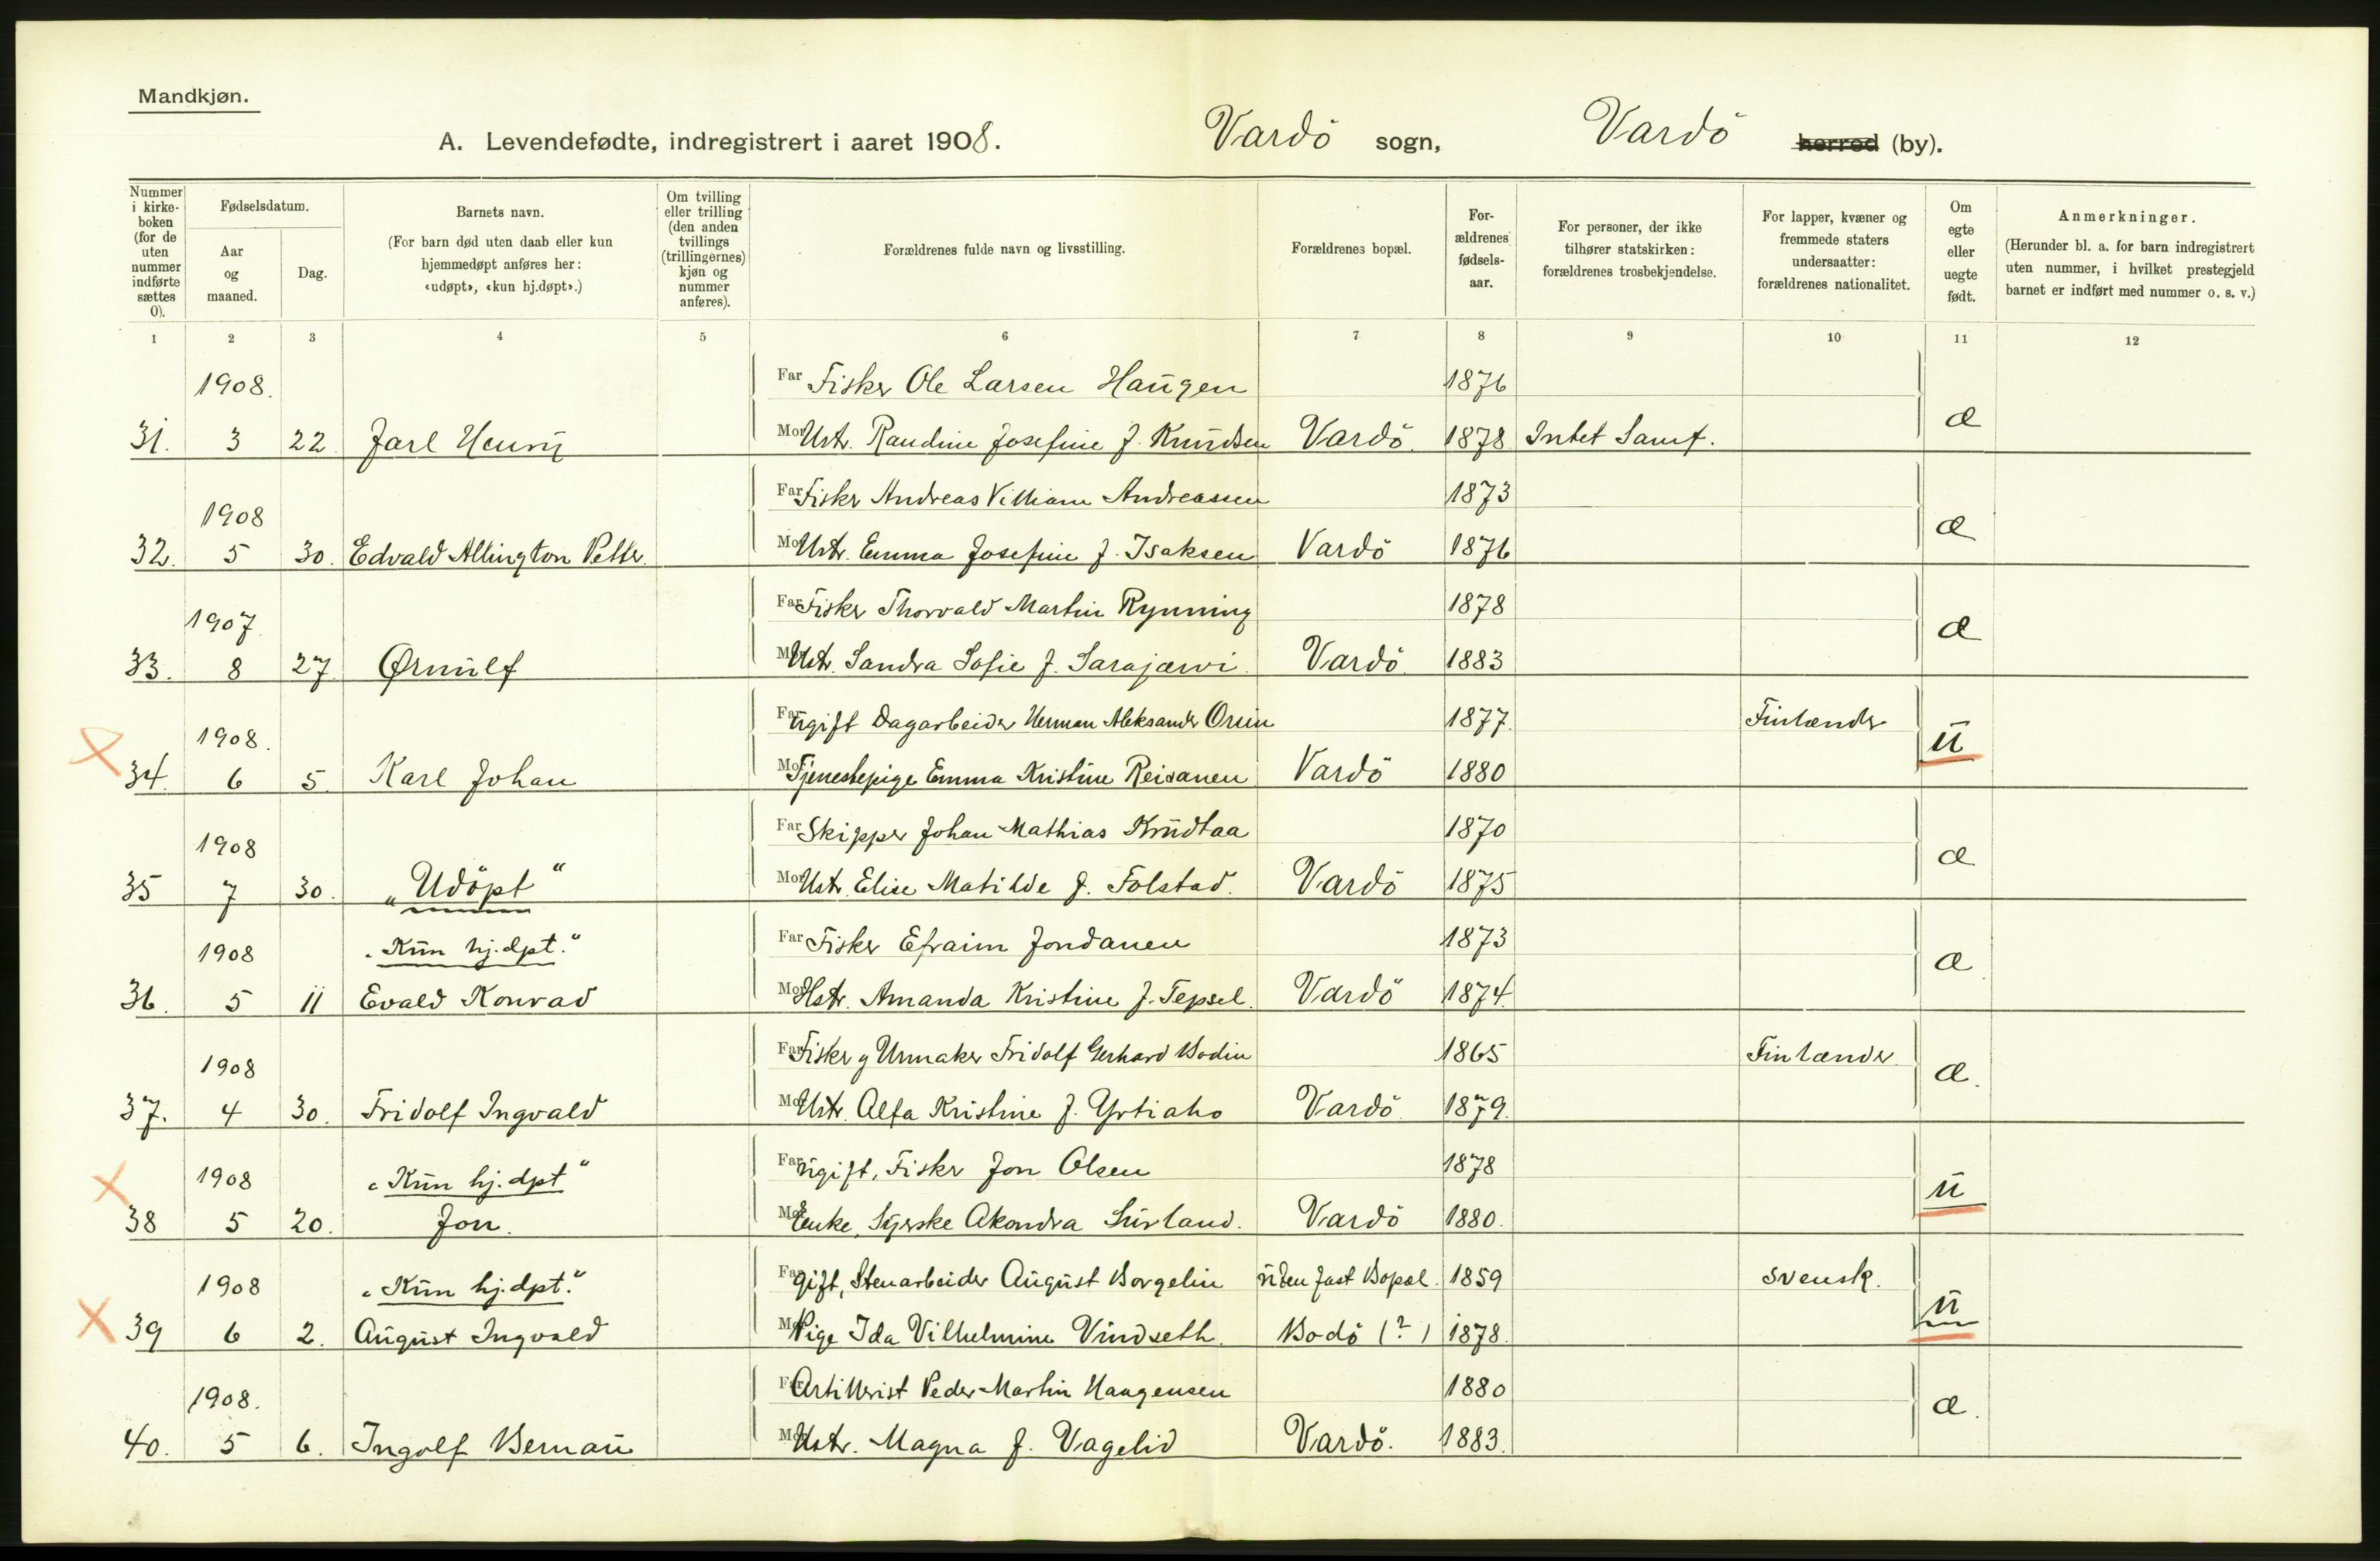 Mandkjøn.
A. Levendefødte, indregistrert i aaret 1908. Vardö sogn, Vardö herred (by).
Nummer i kirke-boken (for de uten nummer indførte sættes 0).
Fødselsdatum.
Aar og maaned.
Dag.
Barnets navn.
(For barn død uten daab eller kun hjemmedøpt anføres her: «udøpt», «kun hj.døpt».)
Om tvilling eller trilling (den anden tvillings (trillingernes) kjøn og nummer anføres).
Forældrenes fulde navn og livsstilling.
Forældrenes bopæl.
For-ældrenes fødsels-aar.
For personer, der ikke tilhører statskirken: forældrenes trosbekjendelse.
For lapper, kvæner og fremmede staters undersaatter: forældrenes nationalitet.
Om egte eller uegte født.
Anmerkninger.
(Herunder bl. a. for barn indregistrert uten nummer, i hvilket prestegjeld barnet er indført med nummer o. s. v.)
1 2 3 4 5 6 7 8 9 10 11 12
1908. Far Fisker Ole Larsen Haugen 1876
31. 3 22 Jarl Henry Mor Hstr. Raudine Josefine f. Knudsen Vardö. 1878 Intet Samf. æ
1908 Far Fisker Andreas Villiam Andreassen 1873
32. 5 30. Edvald Allington Petter. Mor Hstr. Emma Josefine f. Isaksen Vardö 1876 æ
1907 Far Fisker Thorvald Martin Rynning 1878
33. 8 27 Ørnulf Mor Hstr. Sandra Sofie f. Sarajærvi. Vardö. 1883 æ
1908. Far ugift Dagarbeider Herman Aleksander 1877. Finlænder
34. 6 5. Karl Johan Mor Tjenestepige Emma Kristine Reisanen Vardö 1880 u
1908 Far Skipper Johan Mathias Knudtaa 1870
35 7 30. „Udöpt“ Mor Hstr. Elise Matilde f. Folstad. Vardö 1875 æ
1908 „Kun hj.dpt.“ Far Fisker Efraim Jondanen 1873
36. 5 11 Evald Konrad Mor Hstr. Amanda Kristine f. Tepsel. Vardö 1874. æ
1908 Far Fisker og Urmaker Fridolf Gerhard Bodin 1865 Finlænder.
37. 4 30. Fridolf Ingvald Mor Hstr. Alfa Kristine f. Yrtiaho Vardö. 1879. æ.
1908 „Kun hj.dpt“ Far ugift, Fisker Jon Olsen 1878
38 5 20. Jon. Mor Enke, Syerske Akondra Surland. Vardö 1880. u
1908 „Kun hj.dpt.“ Far gift, Stenarbeider August Borgelin uden fast Bopæl. 1859 svensk.
39 6 2. August Ingvald Mor Pige Ida Vilhelmine Vindseth. Bodö (?) 1878. u
1908. Far Artillerist Peder Martin Haagensen 1880
40. 5 6. Ingolf Bernau Mor Hstr. Magna f. Vagelid Vardö. 1883. æ.